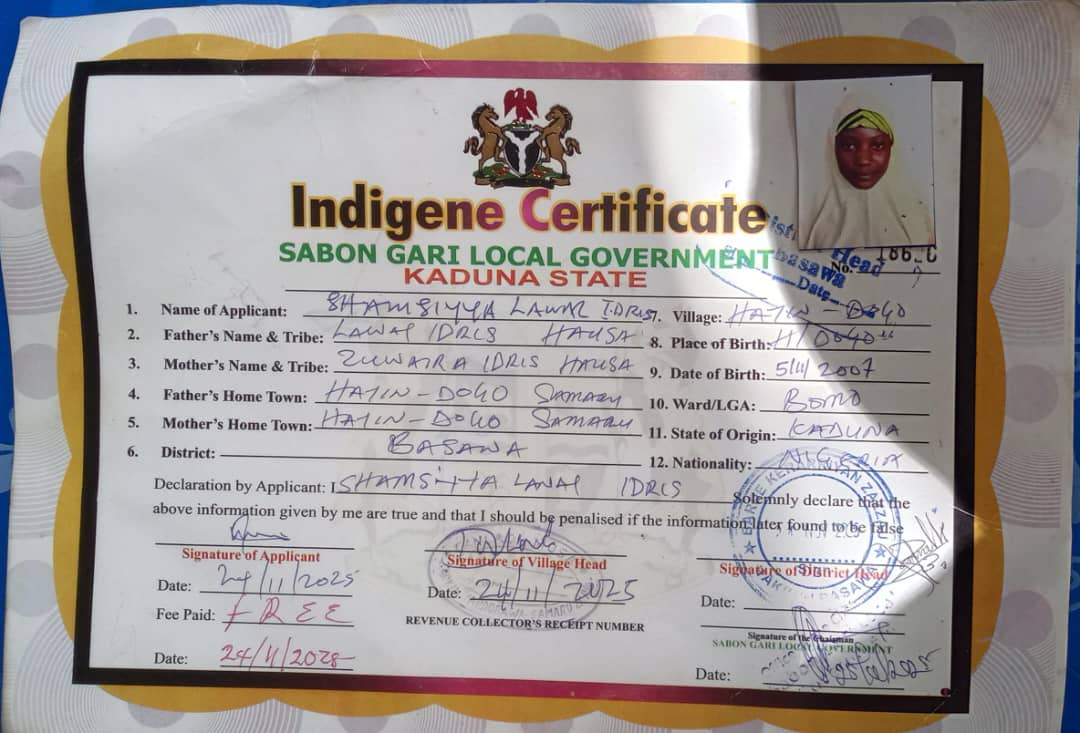 Indigene Certificate
SABON GARI LOCAL GOVERNMENT
KADUNA STATE
Head
Basawa
Date
No:
1. Name of Applicant: SHAMSIYYA LAWAL IDRIS
7. Village: HAYIN-DOGO
2. Father's Name & Tribe: LAWAL IDRIS HAUSA
8. Place of Birth: H/DOGO
3. Mother's Name & Tribe: ZUWAIRA IDRIS HAUSA
9. Date of Birth: 5/11/2007
4. Father's Home Town: HAYIN-DOGO SAMARU
10. Ward/LGA: BOMO
5. Mother's Home Town: HAYIN-DOGO SAMARU
11. State of Origin: KADUNA
6. District: BASAWA
12. Nationality: NIGERIA
Declaration by Applicant: I SHAMSIYYA LAWAL IDRIS Solemnly declare that the
above information given by me are true and that I should be penalised if the information later found to be false
Signature of Applicant
Date: 24/11/2025
Fee Paid: FREE
Date: 24/11/2025
Signature of Village Head
Date: 24/11/2025
REVENUE COLLECTOR'S RECEIPT NUMBER
Signature of District Head
Date:
Signature of the Chairman
SABON GARI LOCAL GOVERNMENT
Date: